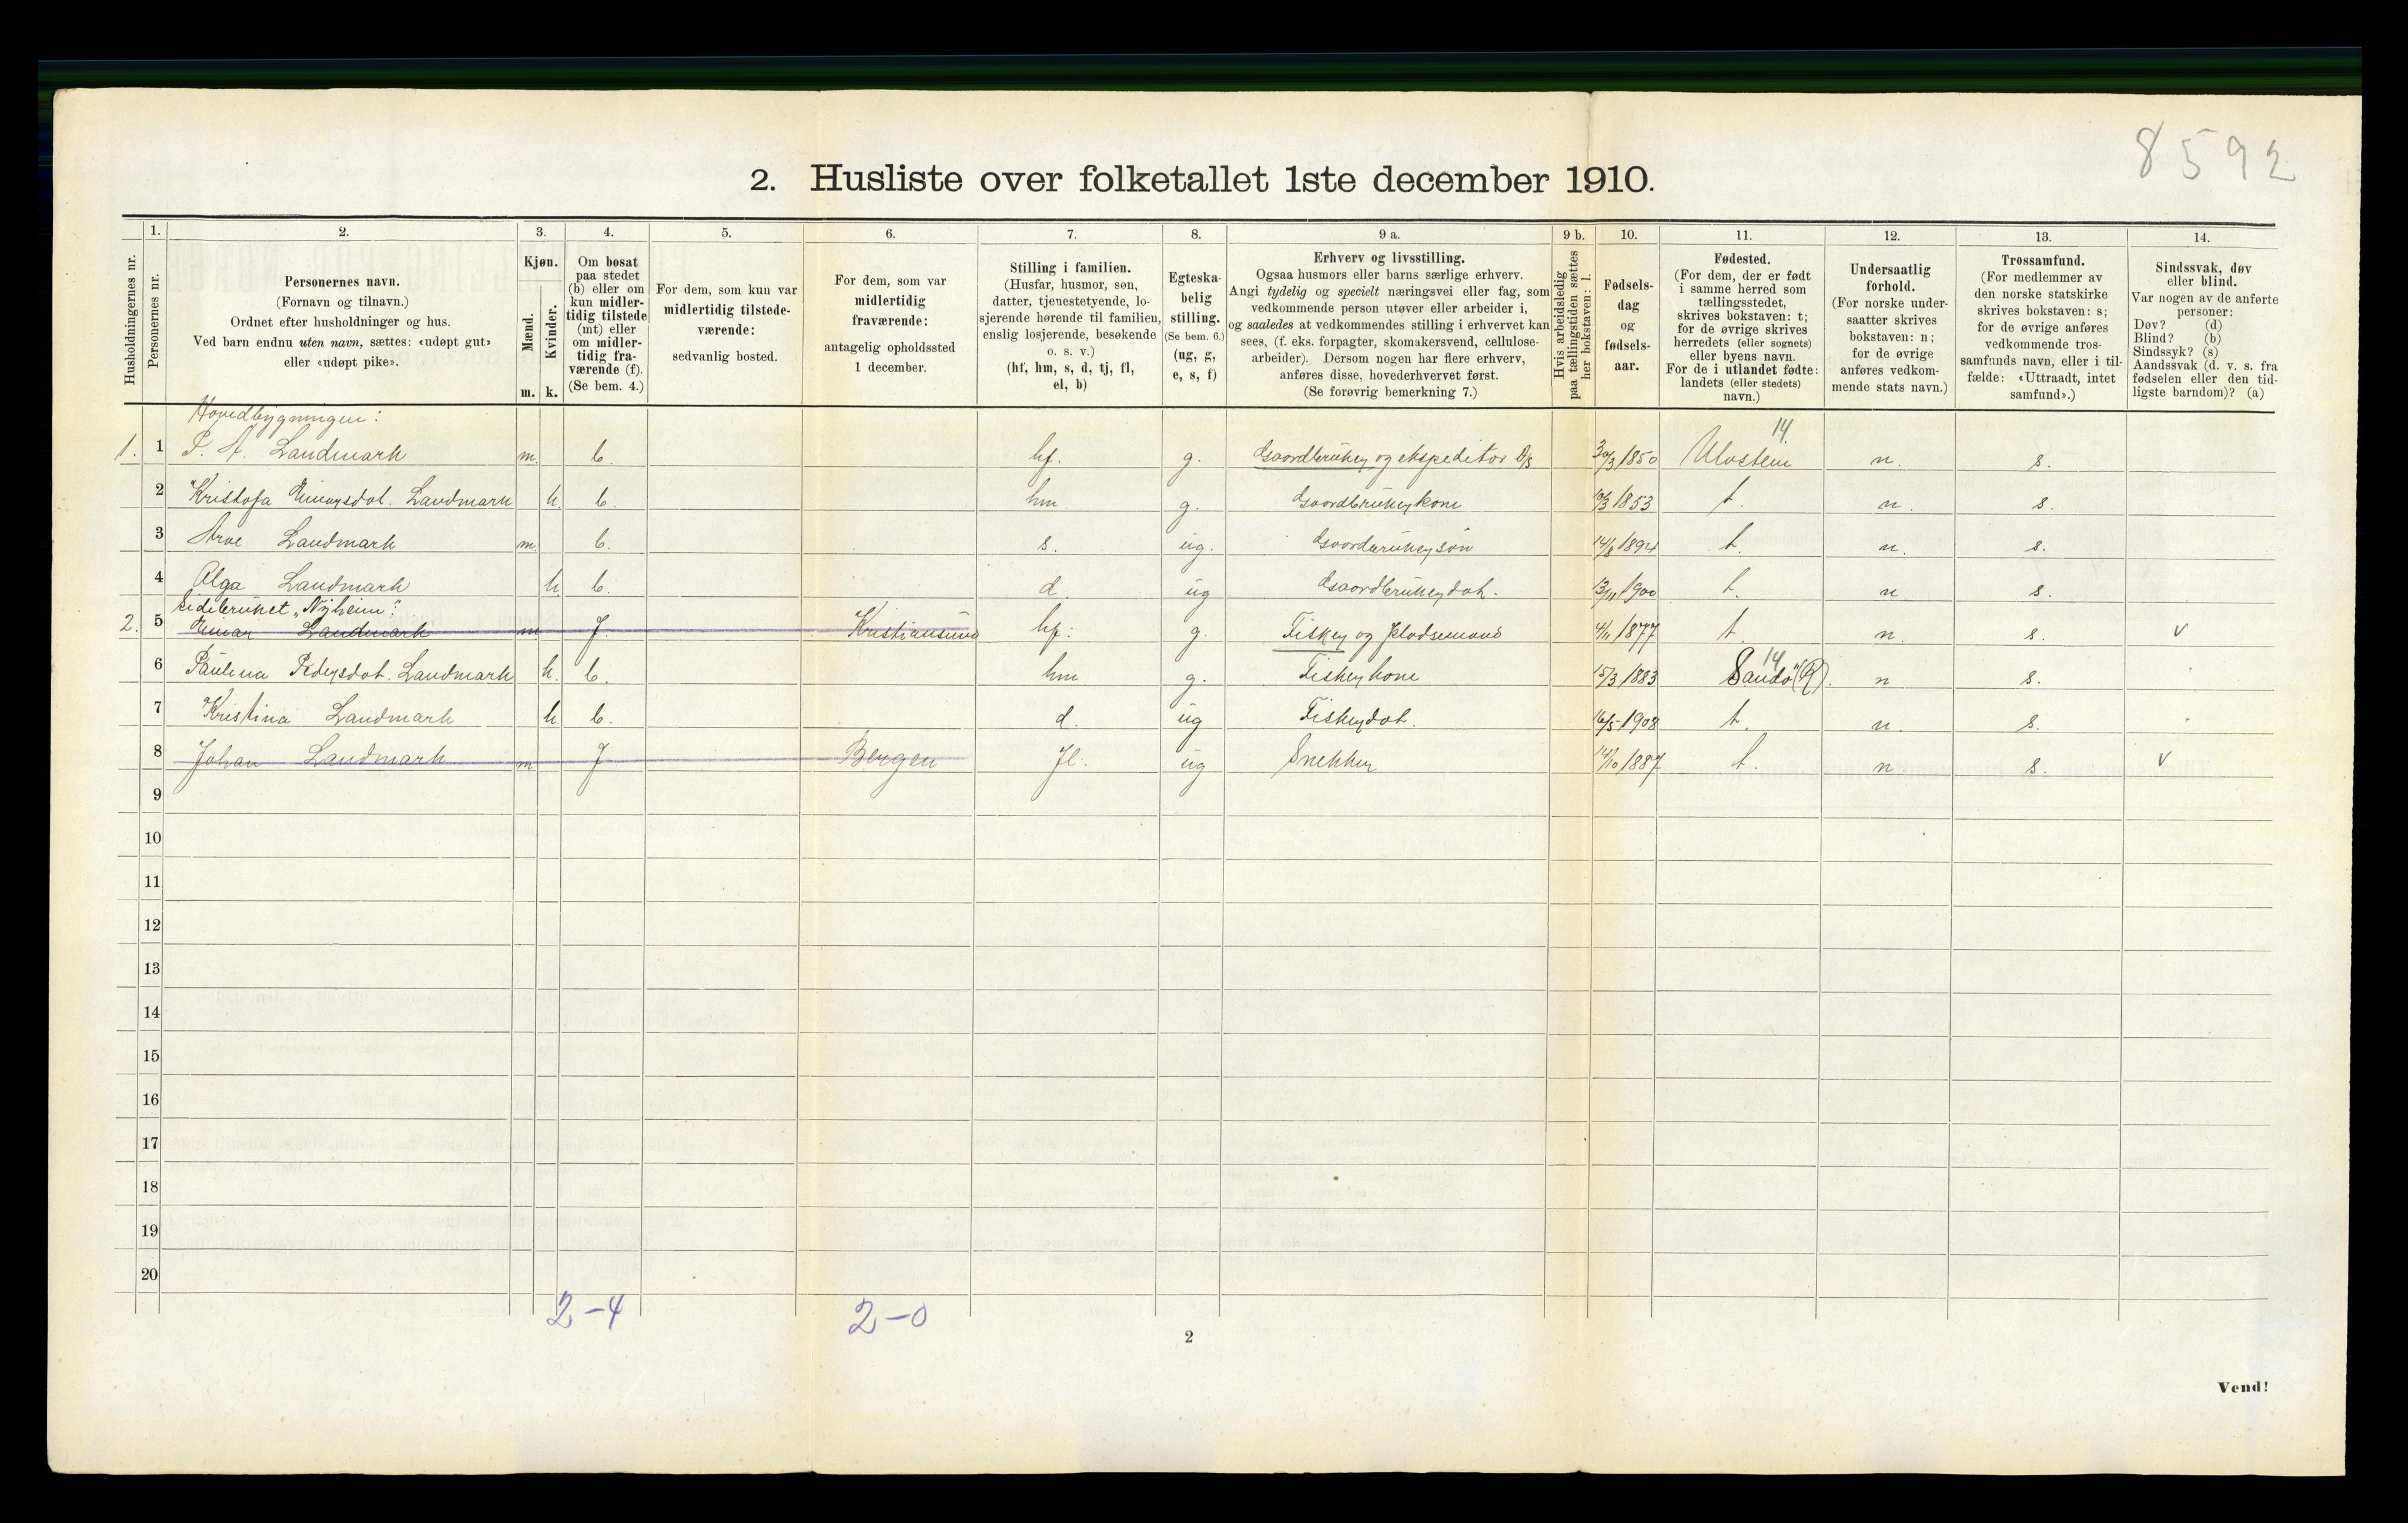 8592
2. Husliste over folketallet 1ste december 1910.
Husholdningernes nr.
1.
Personernes nr.
2.
Personernes navn.
(Fornavn og tilnavn.)
Ordnet efter husholdninger og hus.
Ved barn endnu uten navn, sættes: «udøpt gut»
eller «udøpt pike».
3.
Kjøn.
Mænd.
Kvinder.
m. k.
4.
Om bosat
paa stedet
(b) eller om
kun midler-
tidig tilstede
(mt) eller
om midler-
tidig fra-
værende (f).
(Se bem. 4.)
5.
For dem, som kun var
midlertidig tilstede-
værende:
sedvanlig bosted.
6.
For dem, som var
midlertidig
fraværende:
antagelig opholdssted
1 december.
7.
Stilling i familien.
(Husfar, husmor, søn,
datter, tjenestetyende, lo-
sjerende hørende til familien,
enslig losjerende, besøkende
o. s. v.)
(hf, hm, s, d, tj, fl,
el, b)
8.
Egteska-
belig
stilling.
(Se bem. 6.)
(ug, g,
e, s, f)
9 a.
Erhverv og livsstilling.
Ogsaa husmors eller barns særlige erhverv.
Angi tydelig og specielt næringsvei eller fag, som
vedkommende person utøver eller arbeider i,
og saaledes at vedkommendes stilling i erhvervet kan
sees, (f. eks. forpagter, skomakersvend, cellulose-
arbeider). Dersom nogen har flere erhverv,
anføres disse, hovederhvervet først.
(Se forøvrig bemerkning 7.)
9 b.
Hvis arbeidsledig
paa tællingstiden sættes
her bokstaven: l.
10.
Fødsels-
dag
og
fødsels-
aar.
11.
Fødested.
(For dem, der er født
i samme herred som
tællingsstedet,
skrives bokstaven: t;
for de øvrige skrives
herredets (eller sognets)
eller byens navn.
For de i utlandet fødte:
landets (eller stedets)
navn.)
12.
Undersaatlig
forhold.
(For norske under-
saatter skrives
bokstaven: n;
for de øvrige
anføres vedkom-
mende stats navn.)
13.
Trossamfund.
(For medlemmer av
den norske statskirke
skrives bokstaven: s;
for de øvrige anføres
vedkommende tros-
samfunds navn, eller i til-
fælde: «Uttraadt, intet
samfund».)
14.
Sindssvak, døv
eller blind.
Var nogen av de anførte
personer:
Døv? (d)
Blind? (b)
Sindssyk? (s)
Aandssvak (d. v. s. fra
fødselen eller den tid-
ligste barndom)? (a)
Hovedbygningen:
14.
1. 1 P. A. Landmark m b. hf. g. Gaardbruker og ekspeditør D/S 30/3 1850 Ulvstein n. s.
2 Kristofa Landmark k. b. hm. g. Gaardbrukerkone 10/3 1853 t. n. s.
3 Arve Landmark m b. s. ug. Gaardbrukersøn 14/8 1894 t. n. s.
4 Olga Landmark k. b. d. ug Gaardbrukerdat. 13/11 1900 t. n s.
Sidebruket "Nyheim":
2. 5 Einar Landmark m f. Kristiansund hf: g. Fisker og 4/11 1877 t. n. s. v
14
6 Paulina Pedersdat. Landmark k. b. hm g. Fiskerkone 15/3 1883 Sandø (R). n s.
7 Kristina Landmark k. b. d. ug Fiskerdat. 16/5 1908 t. n. s.
8 Johan Landmark m f Bergen fl. ug Snekker 14/10 1887 t. n s. v
9
10
11
12
13
14
15
16
17
18
19
20
2-4 2-0
2
Vend!